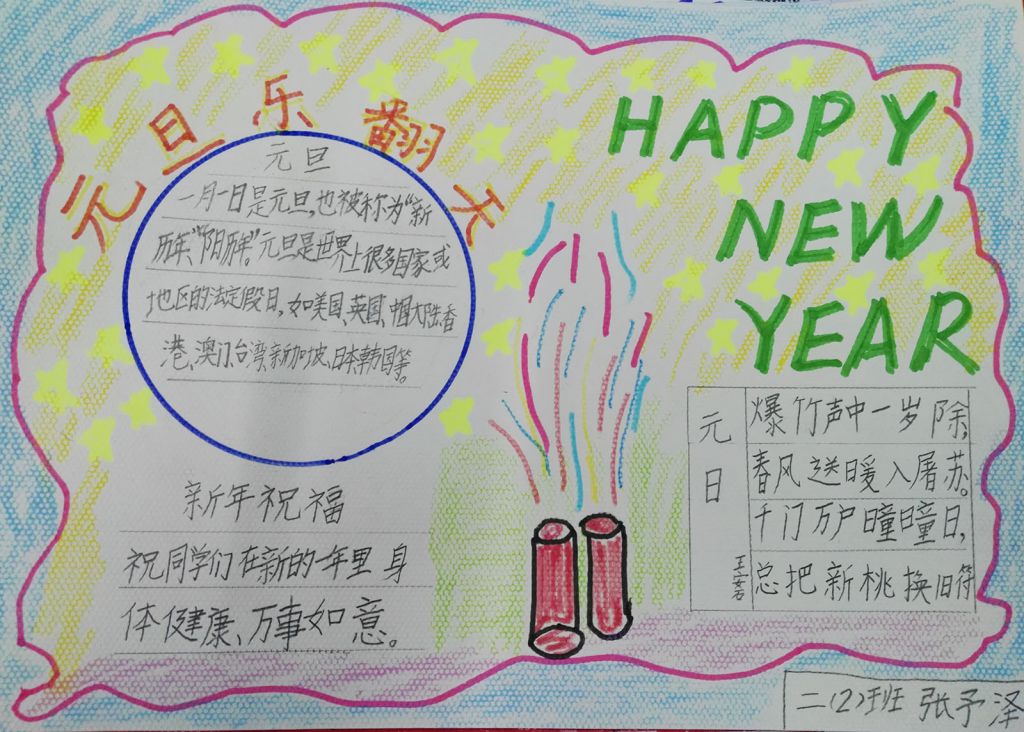 元旦乐翻天
HAPPY
NEW
YEAR
元旦
一月一日是元旦,也被称为“新
历年”“阳历年”。元旦是世界上很多国家或
地区的法定假日,如美国、英国、中国大陆、香
港、澳门、台湾、新加坡、日本、韩国等。
新年祝福
祝同学们在新的一年里身
体健康、万事如意。
元日
王安石
爆竹声中一岁除,
春风送暖入屠苏。
千门万户曈曈日,
总把新桃换旧符
二(2)班 张予泽